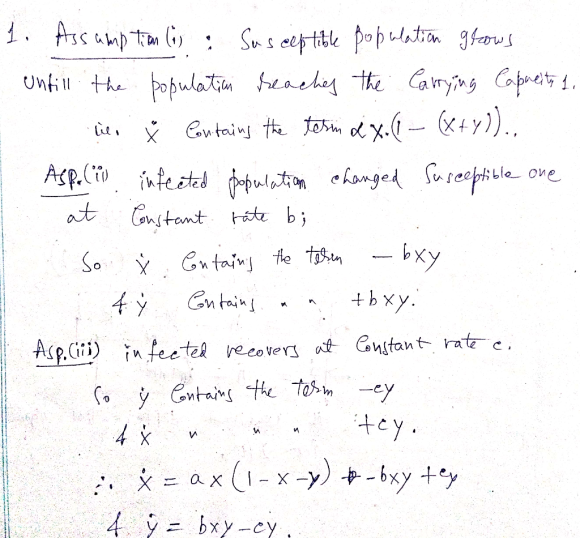 1. Assumption (i) : Susceptible population grows
Untill the population reaches the Carrying Capacity 1.
i.e. ẋ Contains the term αx.(1 – (x+y))..
Asp.(ii) infected population changed Susceptible one
at Constant rate b;
So ẋ Contains the term – bxy
& ẏ Contains " " +bxy.
Asp.(iii) infected recovers at Constant rate c.
So ẏ Contains the term –cy
& ẋ " " " +cy.
∴ ẋ = ax (1–x–y) –bxy +cy
& ẏ = bxy–cy.